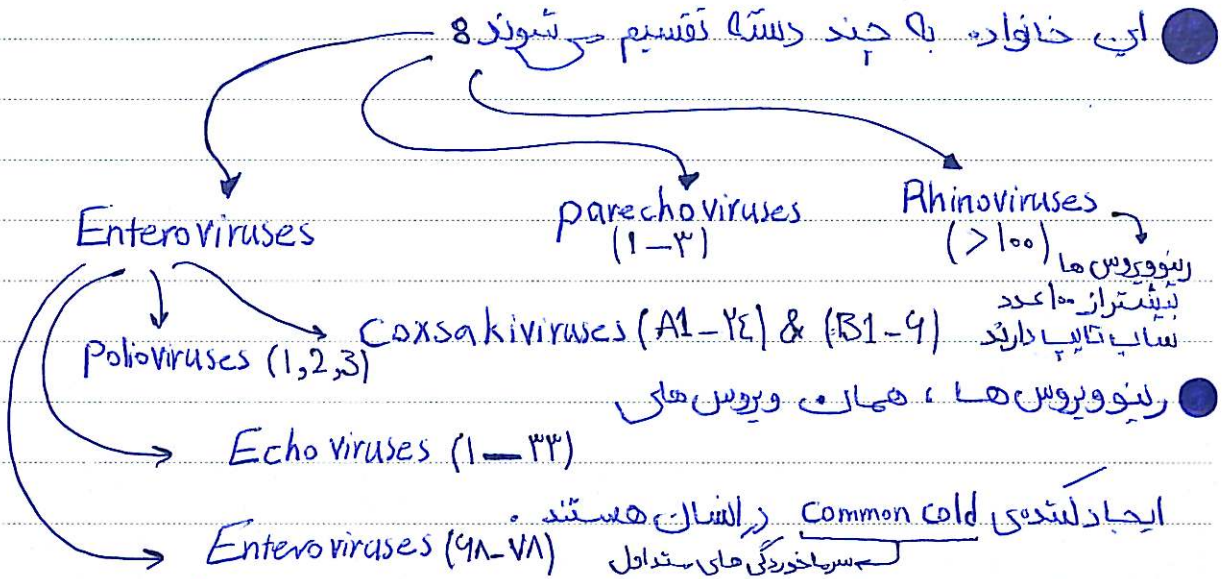 این خانواده به چند دسته تقسیم می‌شوند:
Enteroviruses
parechoviruses
(۱-۳)
Rhinoviruses
(>۱۰۰)
رینوویروس ها
بیشتر از ۱۰۰ عدد
ساب تایپ دارند
Polioviruses (1,2,3)
Coxsakiviruses (A1-۲۴) & (B1-۶)
Echo viruses (۱-۳۳)
Enteroviruses (۶۸-۷۸)
رینوویروس ها ، همان ویروس های
ایجاد کننده‌ی common cold در انسان هستند .
سرماخوردگی های متداول